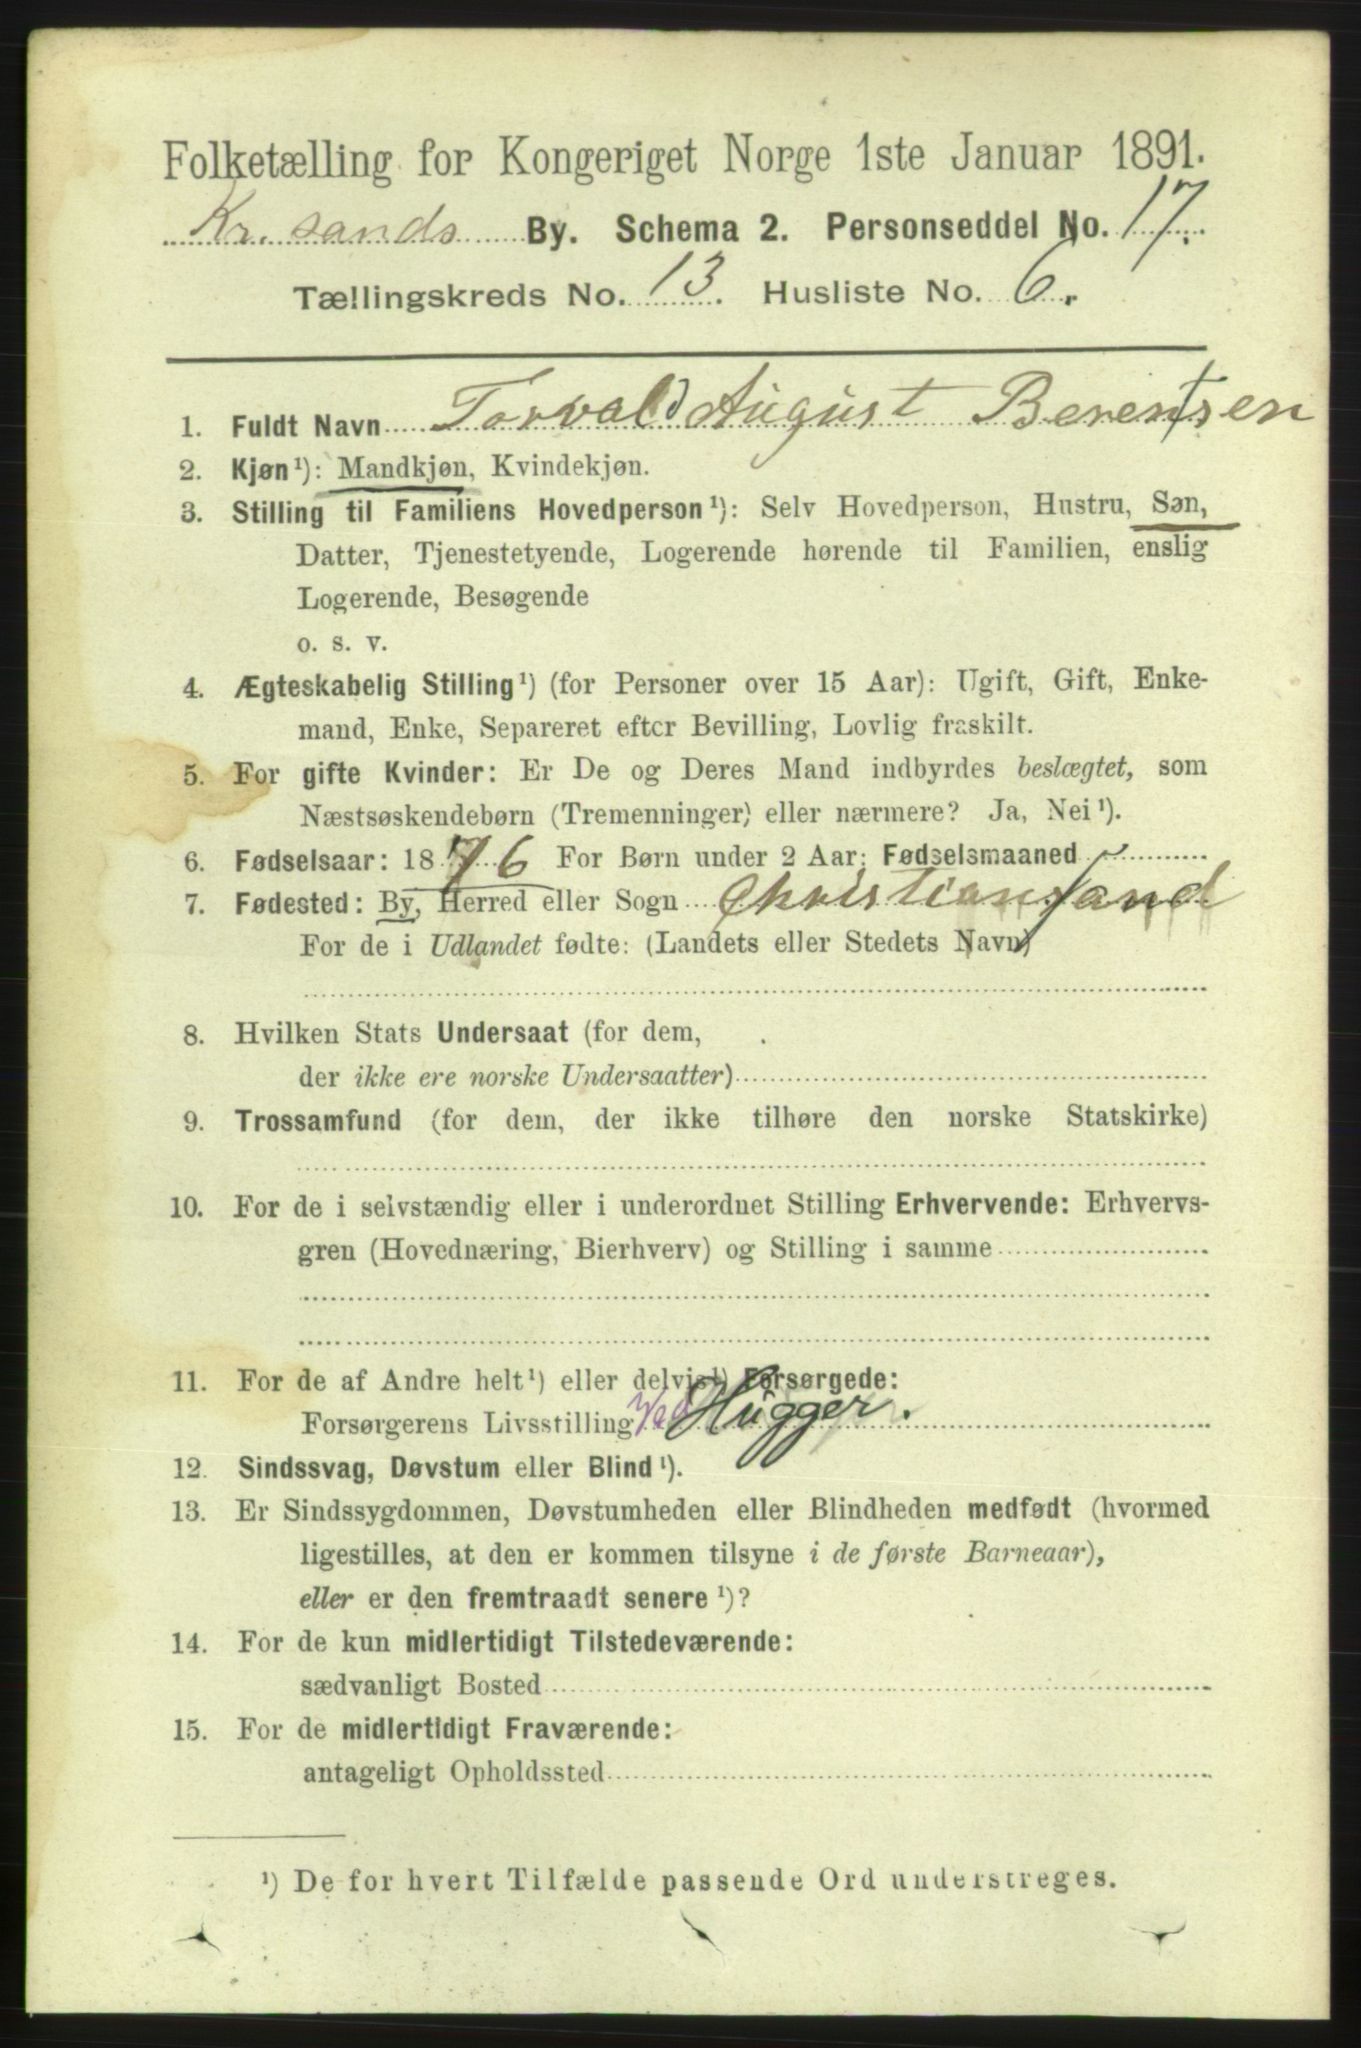 Folketælling for Kongeriget Norge 1ste Januar 1891.
Kr.sands By. Schema 2. Personseddel No. 17.
Tællingskreds No. 13. Husliste No. 6.
1. Fuldt Navn Torvald August Berentsen
2. Kjøn¹): Mandkjøn, Kvindekjøn.
3. Stilling til Familiens Hovedperson¹): Selv Hovedperson, Hustru, Søn,
Datter, Tjenestetyende, Logerende hørende til Familien, enslig
Logerende, Besøgende
o. s. v.
4. Ægteskabelig Stilling¹) (for Personer over 15 Aar): Ugift, Gift, Enke-
mand, Enke, Separeret efter Bevilling, Lovlig fraskilt.
5. For gifte Kvinder: Er De og Deres Mand indbyrdes beslægtet, som
Næstsøskendebørn (Tremenninger) eller nærmere? Ja, Nei¹).
6. Fødselsaar: 1876 For Børn under 2 Aar: Fødselsmaaned
7. Fødested: By, Herred eller Sogn Christiansand
For de i Udlandet fødte: (Landets eller Stedets Navn)
8. Hvilken Stats Undersaat (for dem,
der ikke ere norske Undersaatter)
9. Trossamfund (for dem, der ikke tilhøre den norske Statskirke)
10. For de i selvstændig eller i underordnet Stilling Erhvervende: Erhvervs-
gren (Hovednæring, Bierhverv) og Stilling i samme
11. For de af Andre helt¹) eller delvis¹) Forsørgede:
Forsørgerens Livsstilling Ved Hugger.
12. Sindssvag, Døvstum eller Blind¹).
13. Er Sindssygdommen, Døvstumheden eller Blindheden medfødt (hvormed
ligestilles, at den er kommen tilsyne i de første Barneaar),
eller er den fremtraadt senere¹)?
14. For de kun midlertidigt Tilstedeværende:
sædvanligt Bosted
15. For de midlertidigt Fraværende:
antageligt Opholdssted
¹) De for hvert Tilfælde passende Ord understreges.